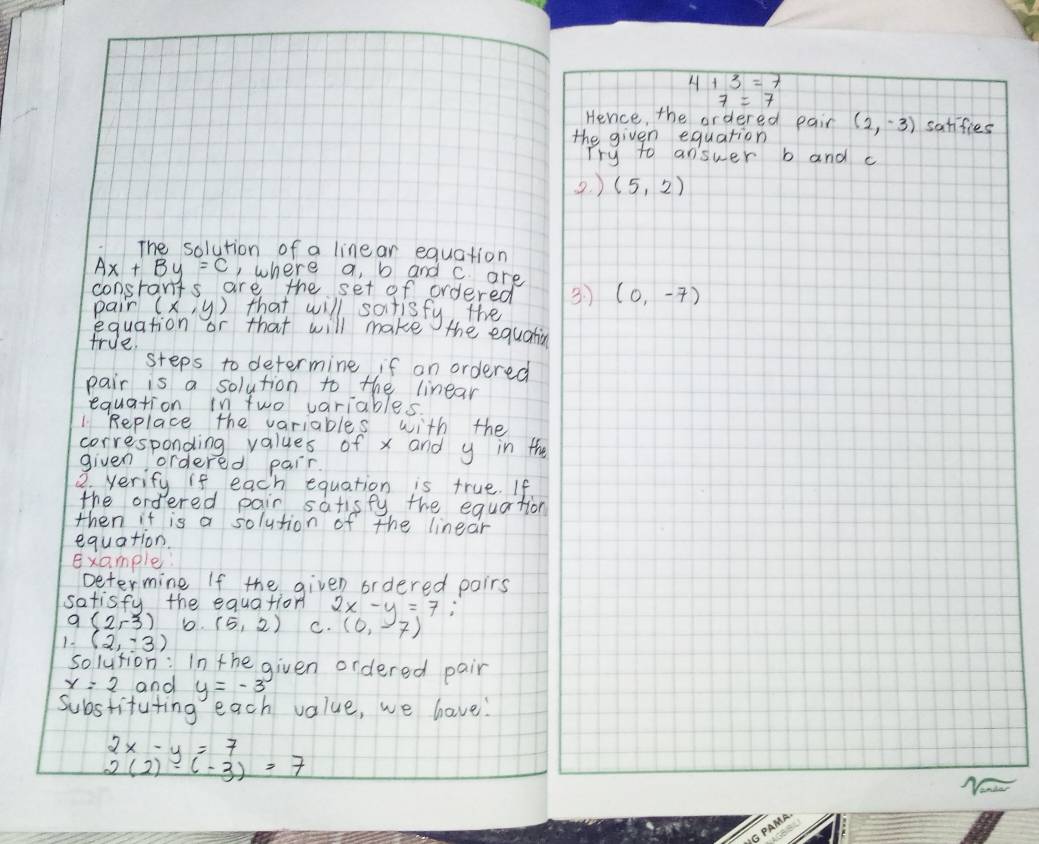 The solution of a linear equation
Ax + By = C, where a, b and c. are
constants are the set of ordered
pair (x, y) that will satisfy the
equation or that will make the equation
true.
Steps to determine if an ordered
pair is a solution to the linear
equation in two variables.
1. Replace the variables with the
corresponding values of x and y in the
given ordered pair.
2. Verify if each equation is true. If
the ordered pair satisfy the equation
then it is a solution of the linear
equation.
Example:
Determine if the given ordered pairs
satisfy the equation 2x - y = 7:
a (2,-3) b. (5, 2) c. (0, -7)
1. (2, -3)
Solution: In the given ordered pair
x = 2 and y = -3
Substituting each value, we have:
2x - y = 7
2(2) - (-3) = 7
4 + 3 = 7
7 = 7
Hence, the ordered pair (2, -3) satifies
the given equation
Try to answer b and c
2.) (5, 2)
3.) (0, -7)
Vanda
NG PAMA
AGBIBILI